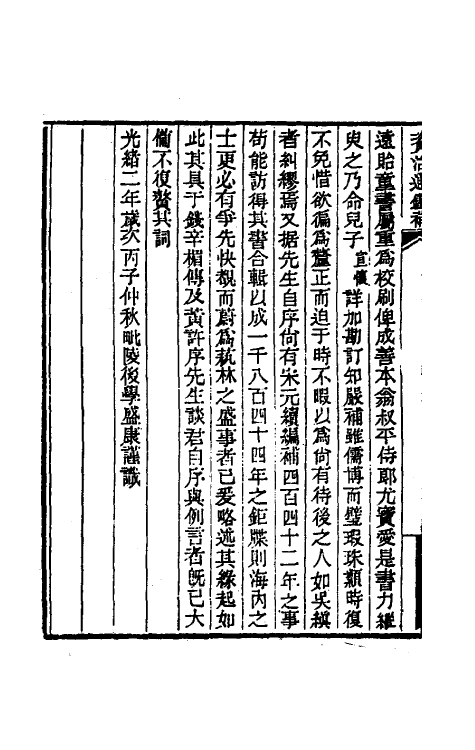 資治通鑑補
遠貽童書屬重爲校刷俾成善本翁叔平侍郎尤寶愛是書力縱
臾之乃命兒子宣懷詳加勘訂知嚴補雖儒博而璧瑕珠纇時復
不免惜欲徧爲釐正而迫于時不暇以爲尙有待後之人如吳縝
者糾繆焉又据先生自序尙有宋元續編補四百四十二年之事
苟能訪得其書合輯以成一千八百四十四年之鉅牒則海内之
士更必有爭先快覩而蔚爲蓺林之盛事者已爰略述其緣起如
此其具于錢辛楣傳及黃許序先生談君自序與例言者旣已大
備不復贅其詞
光緒二年歲次丙子仲秋毗陵後學盛康謹識